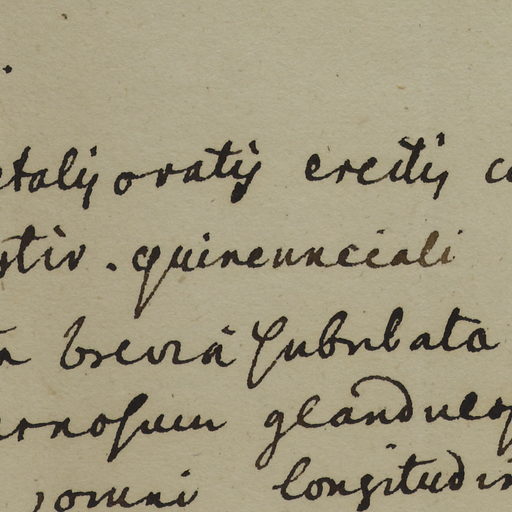 etalis ovatis erectis c
stiv. quincunciali
a brevia subulata
arnosum glandulos
, omni longitudin